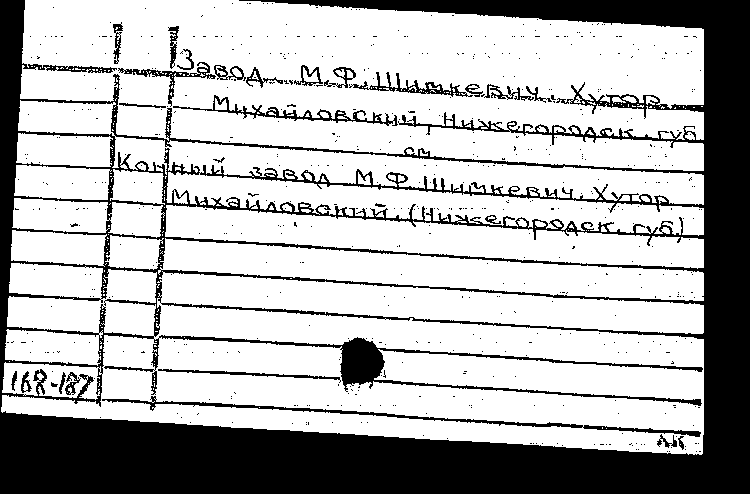 Завод. М.Ф. Шимкевич. Хутор
Михайловский, Нижегородск. губ
см.
Конный завод М.Ф. Шимкевич. Хутор
Михайловский. (Нижегородск. губ.)
168-187
АК